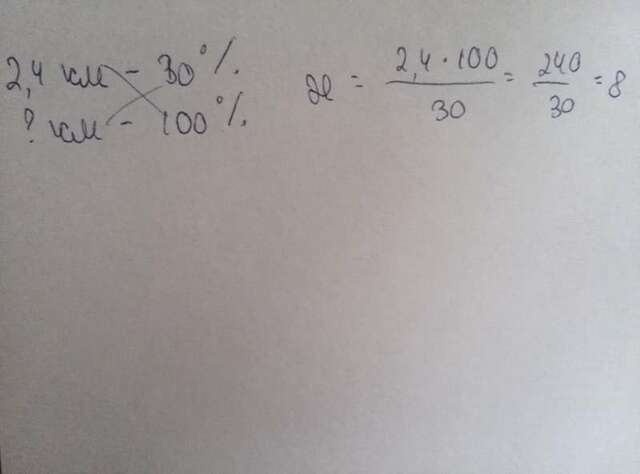 2,4 км - 30%
? км - 100%
x = 2,4 · 100 / 30 = 240 / 30 = 8